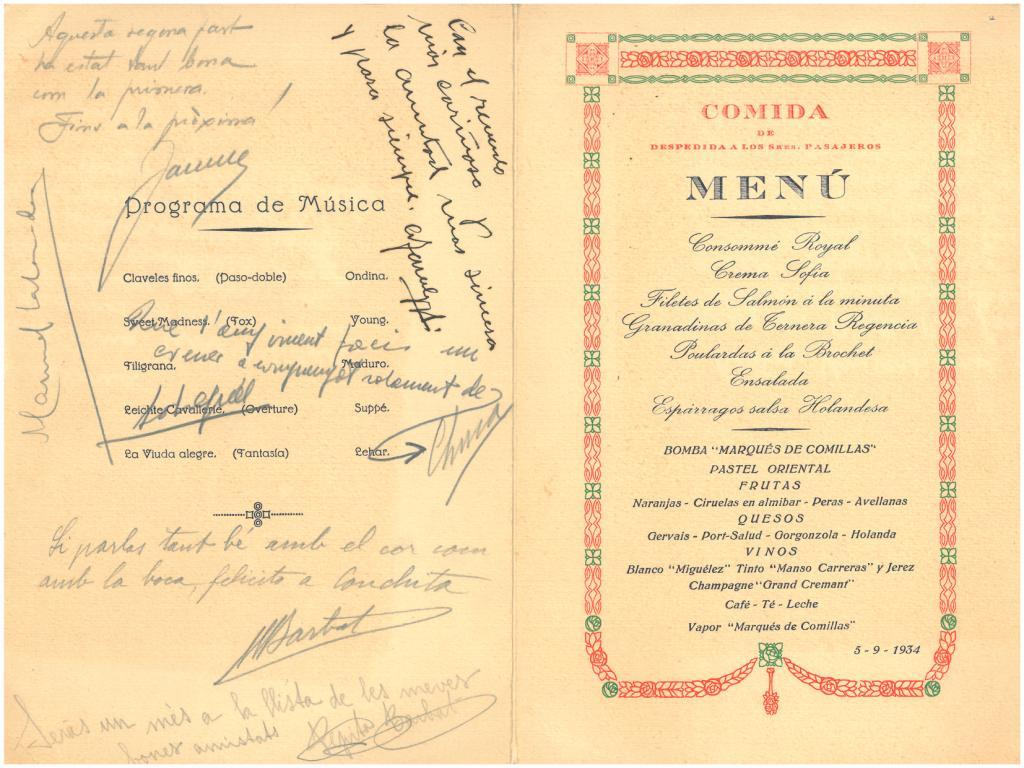 Aquesta segona part
ha estat tant bona
com la primera.
Fins a la pròxima!
Jaume
Con el recuerdo
más cariñoso y
la amistad mas sincera
y para siempre.
Programa de Música
Claveles finos. (Paso-doble) Ondina.
Sweet Madness. (Fox) Young.
Filigrana. Maduro.
Leichte Cavallerie. (Overture) Suppé.
La Viuda alegre. (Fantasía) Lehar.
Que l'any vinent facis un
creuer acompanyat solament de
Si parles tant bé amb el cor com
amb la boca, felicito a Conchita
MBarbat
Seràs un més a la llista de les meves
bones amistats Pepita Barbat
COMIDA
DE
DESPEDIDA A LOS SRES. PASAJEROS
MENÚ
Consommé Royal
Crema Sofia
Filetes de Salmón á la minuta
Granadinas de Ternera Regencia
Poulardas á la Brochet
Ensalada
Espárragos salsa Holandesa
BOMBA "MARQUÉS DE COMILLAS"
PASTEL ORIENTAL
FRUTAS
Naranjas - Ciruelas en almibar - Peras - Avellanas
QUESOS
Gervais - Port-Salud - Gorgonzola - Holanda
VINOS
Blanco "Miguélez" Tinto "Manso Carreras" y Jerez
Champagne "Grand Cremant"
Café - Té - Leche
Vapor "Marqués de Comillas"
5 - 9 - 1934